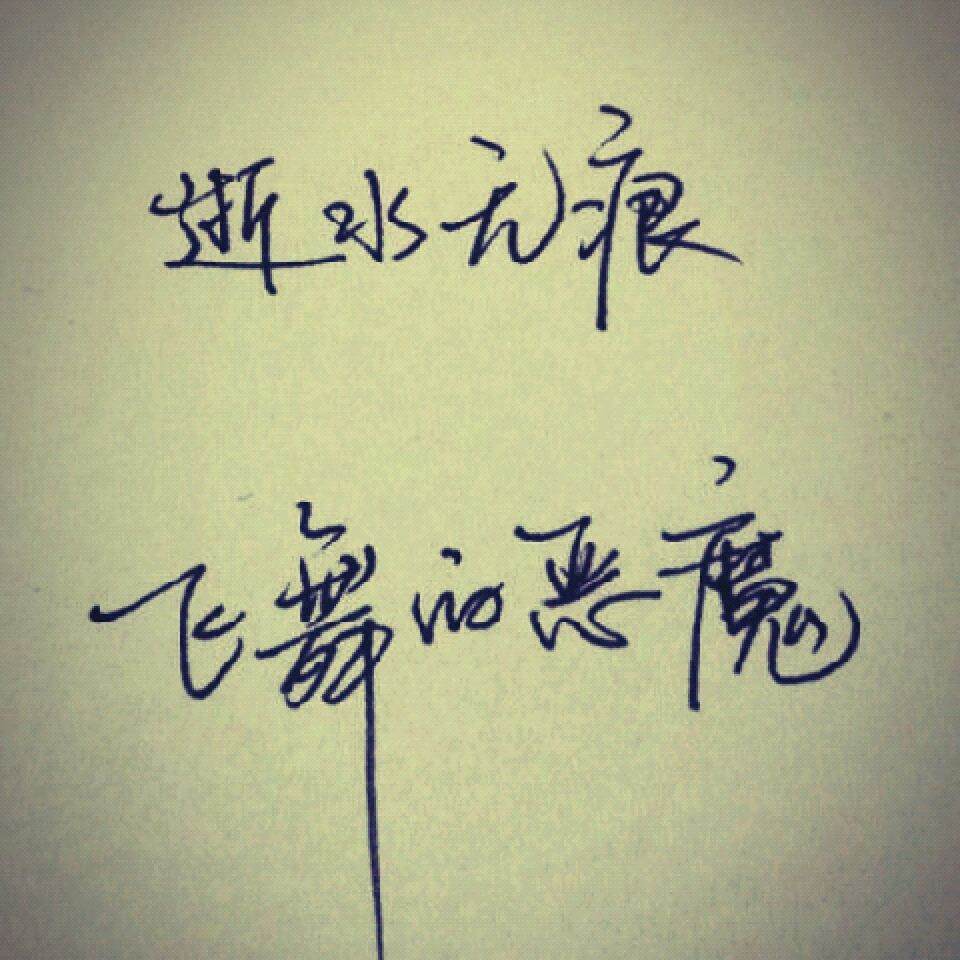 逝水无痕
飞舞的恶魔